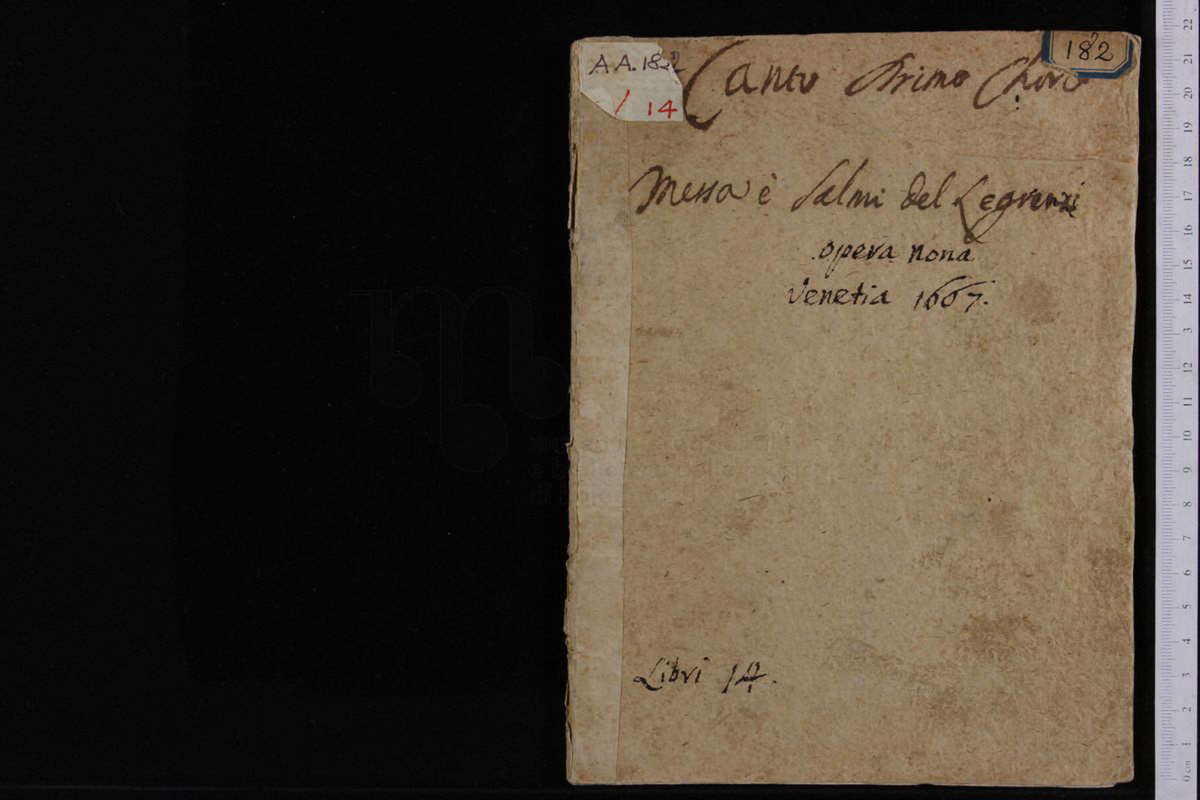 AA.182
/ 14
182
Canto Primo Choro
Messa è Salmi del Legrenzi
opera nona
Venetia 1667.
Libri 14.